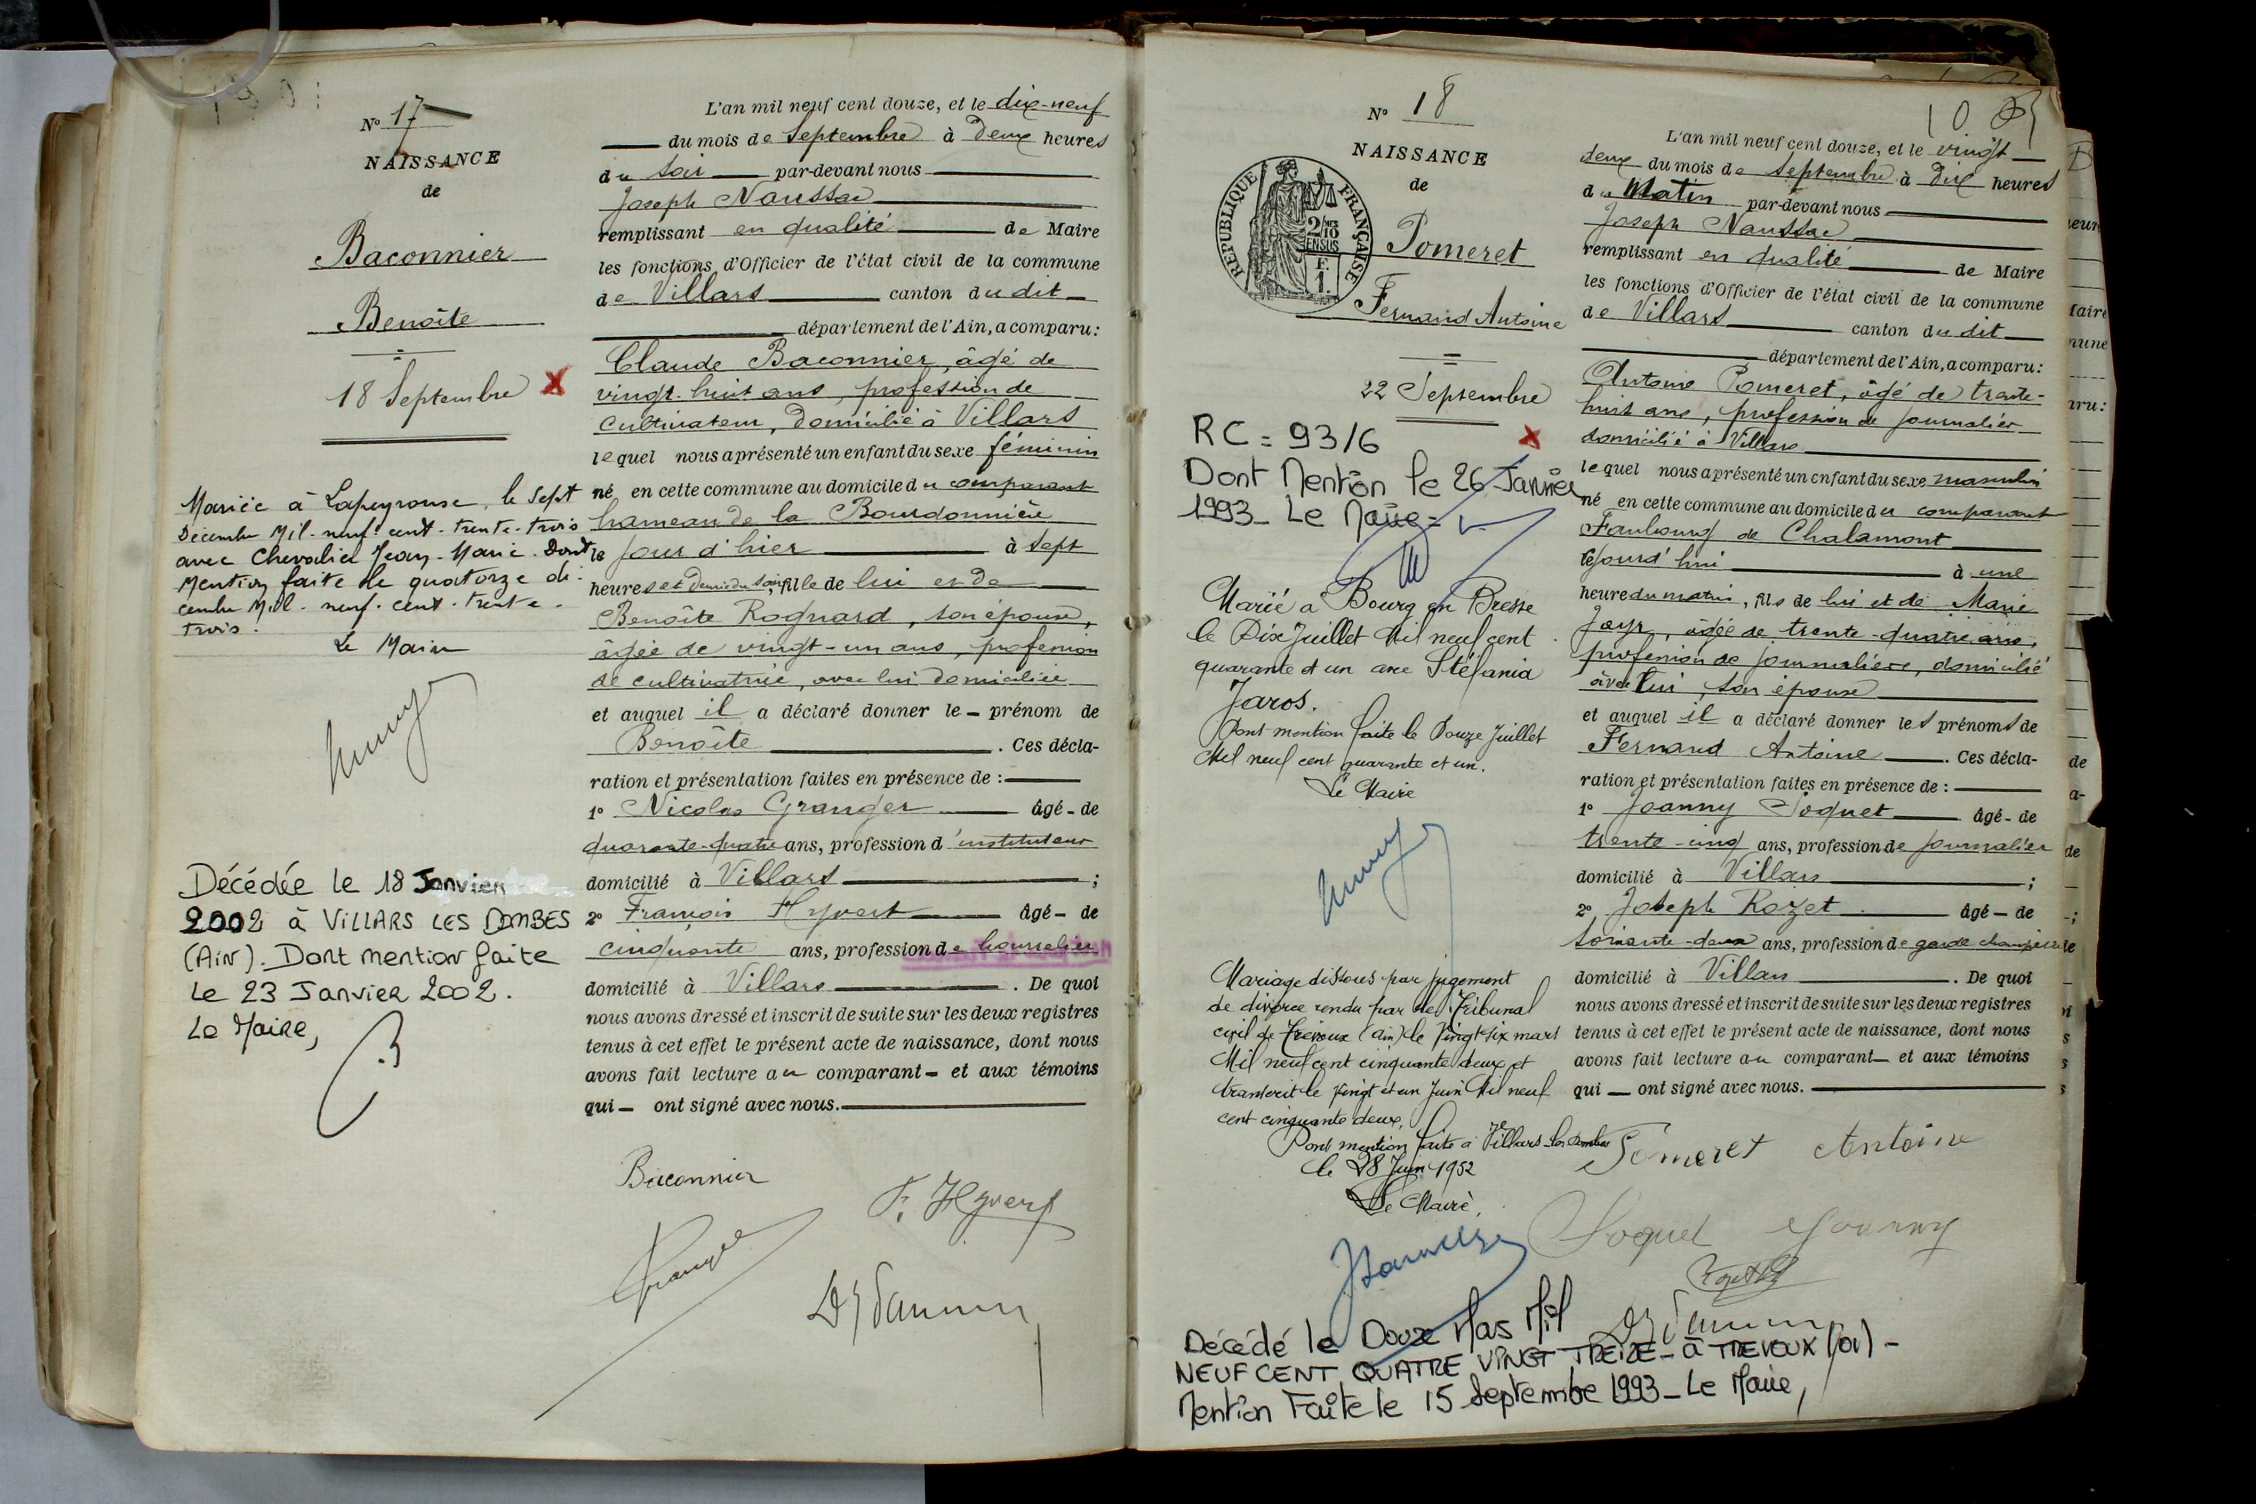 N° 17
NAISSANCE
de
Baconnier
Benoîte
18 Septembre
Mariée à Lapeyrouse, le Sept
Décembre Mil-neuf-cent-trente-trois
avec Chevalier Jean-Marie. Dont
Mention faite le quatorze dé-
cembre Mil-neuf-cent-trente-
trois.
Le Maire
Décédée le 18 Janvier
2002 à VILLARS LES DOMBES
(AiN). Dont mention faite
Le 23 Janvier 2002.
Le Maire,
L'an mil neuf cent douze, et le dix-neuf
du mois de Septembre à Deux heures
du soir par-devant nous
Joseph Naussac
remplissant en qualité de Maire
les fonctions d'Officier de l'état civil de la commune
de Villars canton du dit
département de l'Ain, a comparu:
Claude Baconnier, âgé de
vingt-huit ans, profession de
cultivateur, domicilié à Villars
lequel nous a présenté un enfant du sexe féminin
né en cette commune au domicile du comparant
hameau de la Bourdonnière
le jour d'hier à sept
heures et demie du soir, fille de lui et de
Benoîte Rognard, son épouse,
âgée de vingt-un ans, profession
de cultivatrice, avec lui domiciliée
et auquel il a déclaré donner le prénom de
Benoîte. Ces décla-
ration et présentation faites en présence de :
1° Nicolas Granger âgé de
quarante-quatre ans, profession d'instituteur
domicilié à Villars ;
2° François Hyvert âgé de
cinquante ans, profession de bourrelier
domicilié à Villars. De quoi
nous avons dressé et inscrit de suite sur les deux registres
tenus à cet effet le présent acte de naissance, dont nous
avons fait lecture au comparant et aux témoins
qui ont signé avec nous.
Baconnier
F. Hyvert
Granger
N° 18
NAISSANCE
de
REPUBLIQUE FRANÇAISE
2/10
EN SUS
F.
1.
Pomeret
Fernand Antoine
22 Septembre
RC = 93/6
Dont Mention le 26 Janvier
1993 - Le Maire -
Marié à Bourg en Bresse
le Dix Juillet Mil neuf cent
quarante et un avec Stéfania
Jaros.
Dont mention faite le Douze Juillet
Mil neuf cent quarante et un.
Le Maire
Mariage dissous par jugement
de divorce rendu par le Tribunal
civil de Trévoux (Ain) le Vingt six mars
Mil neuf cent cinquante deux et
transcrit le Vingt et un Juin Mil neuf
cent cinquante deux.
Dont mention faite à Villars les Dombes
le 28 Juin 1952
Le Maire,
L'an mil neuf cent douze, et le vingt
deux du mois de Septembre à Dix heures
du Matin par-devant nous
Joseph Naussac
remplissant en qualité de Maire
les fonctions d'Officier de l'état civil de la commune
de Villars canton du dit
département de l'Ain, a comparu:
Antoine Pomeret, âgé de trente-
huit ans, profession de journalier
domicilié à Villars
lequel nous a présenté un enfant du sexe masculin
né en cette commune au domicile du comparant
Faubourg de Chalamont
cejourd'hui à une
heure du matin, fils de lui et de Marie
Jayr, âgée de trente-quatre ans,
profession de journalière, domicilié
avec lui, son épouse
et auquel il a déclaré donner les prénoms de
Fernand Antoine. Ces décla-
ration et présentation faites en présence de :
1° Joanny Soquet âgé de
trente-cinq ans, profession de journalier
domicilié à Villars ;
2° Joseph Rozet âgé de
soixante-deux ans, profession de garde champêtre
domicilié à Villars. De quoi
nous avons dressé et inscrit de suite sur les deux registres
tenus à cet effet le présent acte de naissance, dont nous
avons fait lecture au comparant et aux témoins
qui ont signé avec nous.
Pomeret Antoine
Soquet Joanny
Décédé le Douze Mars Mil
NEUF CENT QUATRE VINGT TREIZE - à TREVOUX (01) -
Mention Faite le 15 Septembre 1993 - Le Maire,